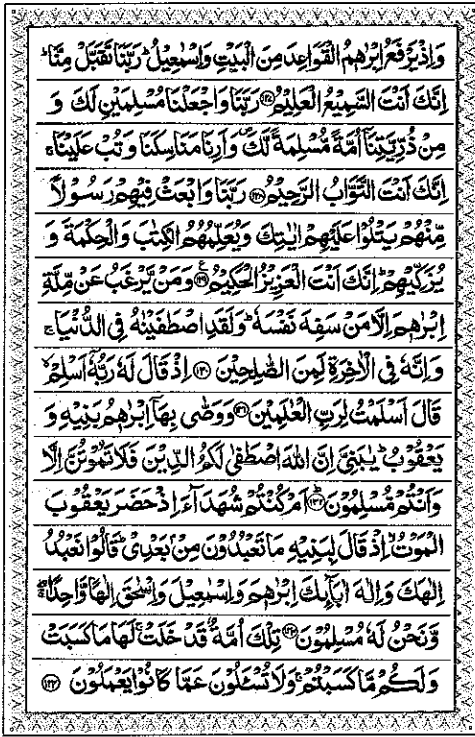 وَاِذْ يَرْفَعُ اِبْرٰهٖمُ الْقَوَاعِدَ مِنَ الْبَيْتِ وَاِسْمٰعِيْلُ ؕ رَبَّنَا تَقَبَّلْ مِنَّا ؕ
اِنَّكَ اَنْتَ السَّمِيْعُ الْعَلِيْمُ ﴿۱۲۷﴾ رَبَّنَا وَاجْعَلْنَا مُسْلِمَيْنِ لَكَ وَ
مِنْ ذُرِّيَّتِنَاۤ اُمَّةً مُّسْلِمَةً لَّكَ ۪ وَاَرِنَا مَنَاسِكَنَا وَتُبْ عَلَيْنَا ۚ
اِنَّكَ اَنْتَ التَّوَّابُ الرَّحِيْمُ ﴿۱۲۸﴾ رَبَّنَا وَابْعَثْ فِيْهِمْ رَسُوْلًا
مِّنْهُمْ يَتْلُوْا عَلَيْهِمْ اٰيٰتِكَ وَيُعَلِّمُهُمُ الْكِتٰبَ وَالْحِكْمَةَ وَ
يُزَكِّيْهِمْ ؕ اِنَّكَ اَنْتَ الْعَزِيْزُ الْحَكِيْمُ ﴿۱۲۹﴾ وَمَنْ يَّرْغَبُ عَنْ مِّلَّةِ
اِبْرٰهٖمَ اِلَّا مَنْ سَفِهَ نَفْسَهٗ ؕ وَلَقَدِ اصْطَفَيْنٰهُ فِى الدُّنْيَا ۚ
وَاِنَّهٗ فِى الْاٰخِرَةِ لَمِنَ الصّٰلِحِيْنَ ﴿۱۳۰﴾ اِذْ قَالَ لَهٗ رَبُّهٗۤ اَسْلِمْ ۙ
قَالَ اَسْلَمْتُ لِرَبِّ الْعٰلَمِيْنَ ﴿۱۳۱﴾ وَوَصّٰى بِهَاۤ اِبْرٰهٖمُ بَنِيْهِ وَ
يَعْقُوْبُ ؕ يٰبَنِىَّ اِنَّ اللّٰهَ اصْطَفٰى لَكُمُ الدِّيْنَ فَلَا تَمُوْتُنَّ اِلَّا
وَاَنْتُمْ مُّسْلِمُوْنَ ﴿۱۳۲﴾ اَمْ كُنْتُمْ شُهَدَآءَ اِذْ حَضَرَ يَعْقُوْبَ
الْمَوْتُ ۙ اِذْ قَالَ لِبَنِيْهِ مَا تَعْبُدُوْنَ مِنْۢ بَعْدِىْ ؕ قَالُوْا نَعْبُدُ
اِلٰهَكَ وَاِلٰهَ اٰبَآئِكَ اِبْرٰهٖمَ وَاِسْمٰعِيْلَ وَاِسْحٰقَ اِلٰهًا وَّاحِدًا ۖۚ
وَّنَحْنُ لَهٗ مُسْلِمُوْنَ ﴿۱۳۳﴾ تِلْكَ اُمَّةٌ قَدْ خَلَتْ ۚ لَهَا مَا كَسَبَتْ
وَلَكُمْ مَّا كَسَبْتُمْ ۚ وَلَا تُسْـَٔلُوْنَ عَمَّا كَانُوْا يَعْمَلُوْنَ ﴿۱۳۴﴾